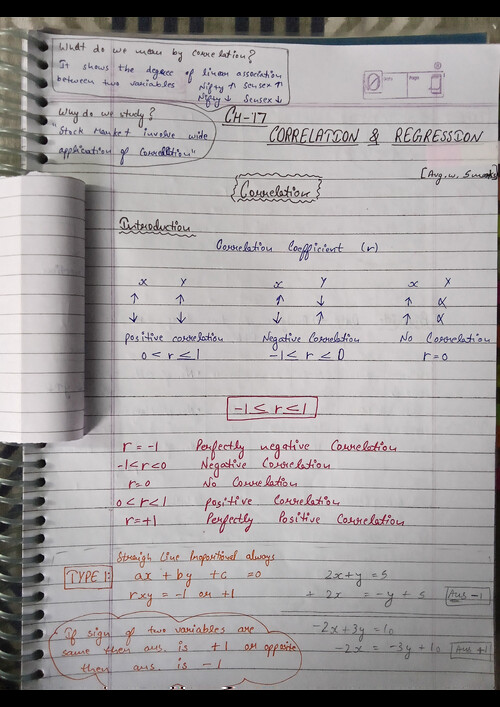 What do we mean by correlation?
It shows the degree of linear association
between two variables Nifty ↑ Sensex ↑
Nifty ↓ Sensex ↓
Why do we study?
"Stock Market involve wide
application of Correlation"
Page
CH-17
CORRELATION & REGRESSION
[Avg. w. 5 marks]
Correlation
Introduction
Correlation Coefficient (r)
x y x y x y
↑ ↑ ↑ ↓ ↑ α
↓ ↓ ↓ ↑ ↑ α
positive correlation Negative Correlation No Correlation
0 < r ≤ 1 -1 ≤ r ≤ 0 r = 0
-1 ≤ r ≤ 1
r = -1 Perfectly negative Correlation
-1 < r < 0 Negative Correlation
r = 0 No Correlation
0 < r < 1 positive Correlation
r = +1 Perfectly Positive Correlation
Straigh Line Proportional always
TYPE 1: ax + by + c = 0 2x + y = 5
rxy = -1 or +1 + 2x = -y + 5 Ans -1
If sign of two variables are -2x + 3y = 10
same then ans. is +1 or opposite -2x = -3y + 10 Ans +1
then ans. is -1